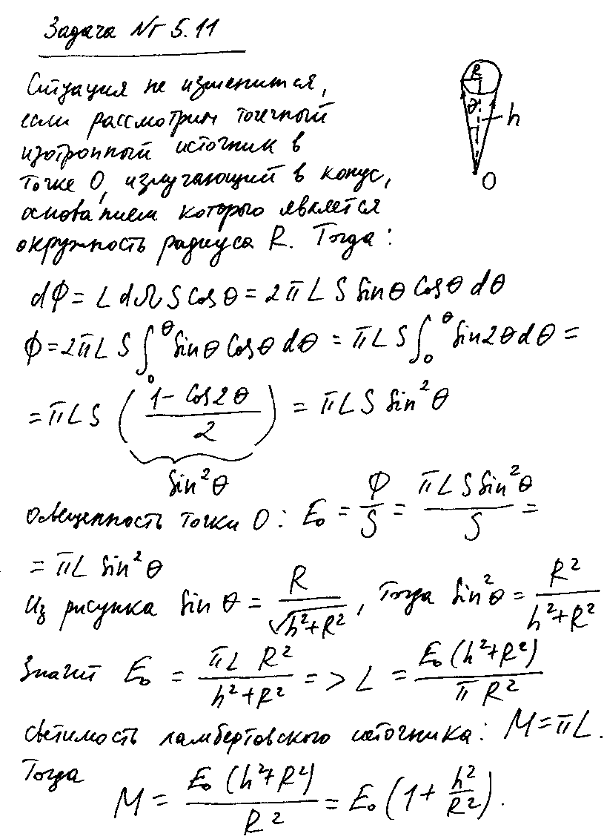 Задача № 5.11
Ситуация не изменится,
если рассмотрим точечный
изотропный источник в
точке O, излучающий в конус,
основанием которого является
окружность радиуса R. Тогда:
R
θ
h
O
dΦ = L dΩ S cos θ = 2πL S sin θ cos θ dθ
Φ = 2πL S ∫₀^θ sin θ cos θ dθ = πL S ∫₀^θ sin 2θ dθ =
= πL S ( (1 - cos 2θ) / 2 ) = πL S sin² θ
sin² θ
Освещенность точки O: E₀ = Φ/S = πL S sin² θ / S =
= πL sin² θ
Из рисунка sin θ = R / √(h²+R²), тогда sin² θ = R² / (h²+R²)
Значит E₀ = πL R² / (h²+R²) => L = E₀(h²+R²) / (πR²)
Светимость ламбертовского источника: M = πL.
Тогда
M = E₀(h²+R²) / R² = E₀(1 + h²/R²).